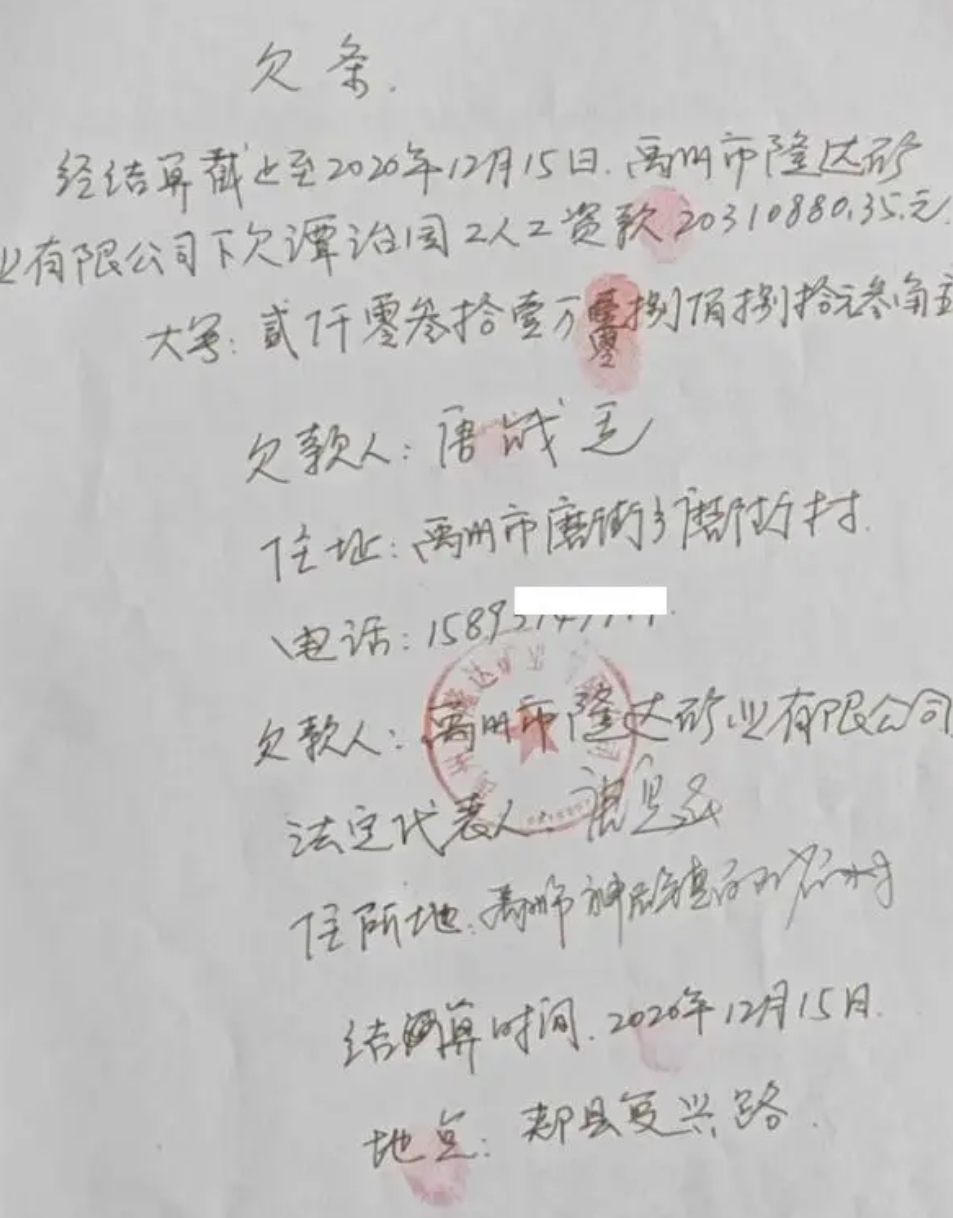 欠条.
经结算截止至2020年12月15日.禹州市隆达矿
业有限公司下欠谭治国工人工资款20310880.35.元.
大写:贰仟零叁拾壹万零捌佰捌拾元叁角
欠款人:唐战
住址:禹州市磨街乡磨街村.
电话:1589
欠款人:禹州市隆达矿业有限公司
法定代表人.唐
住所地.禹州市神垕镇 村
结算时间.2020年12月15日.
地点:郏县复兴路.